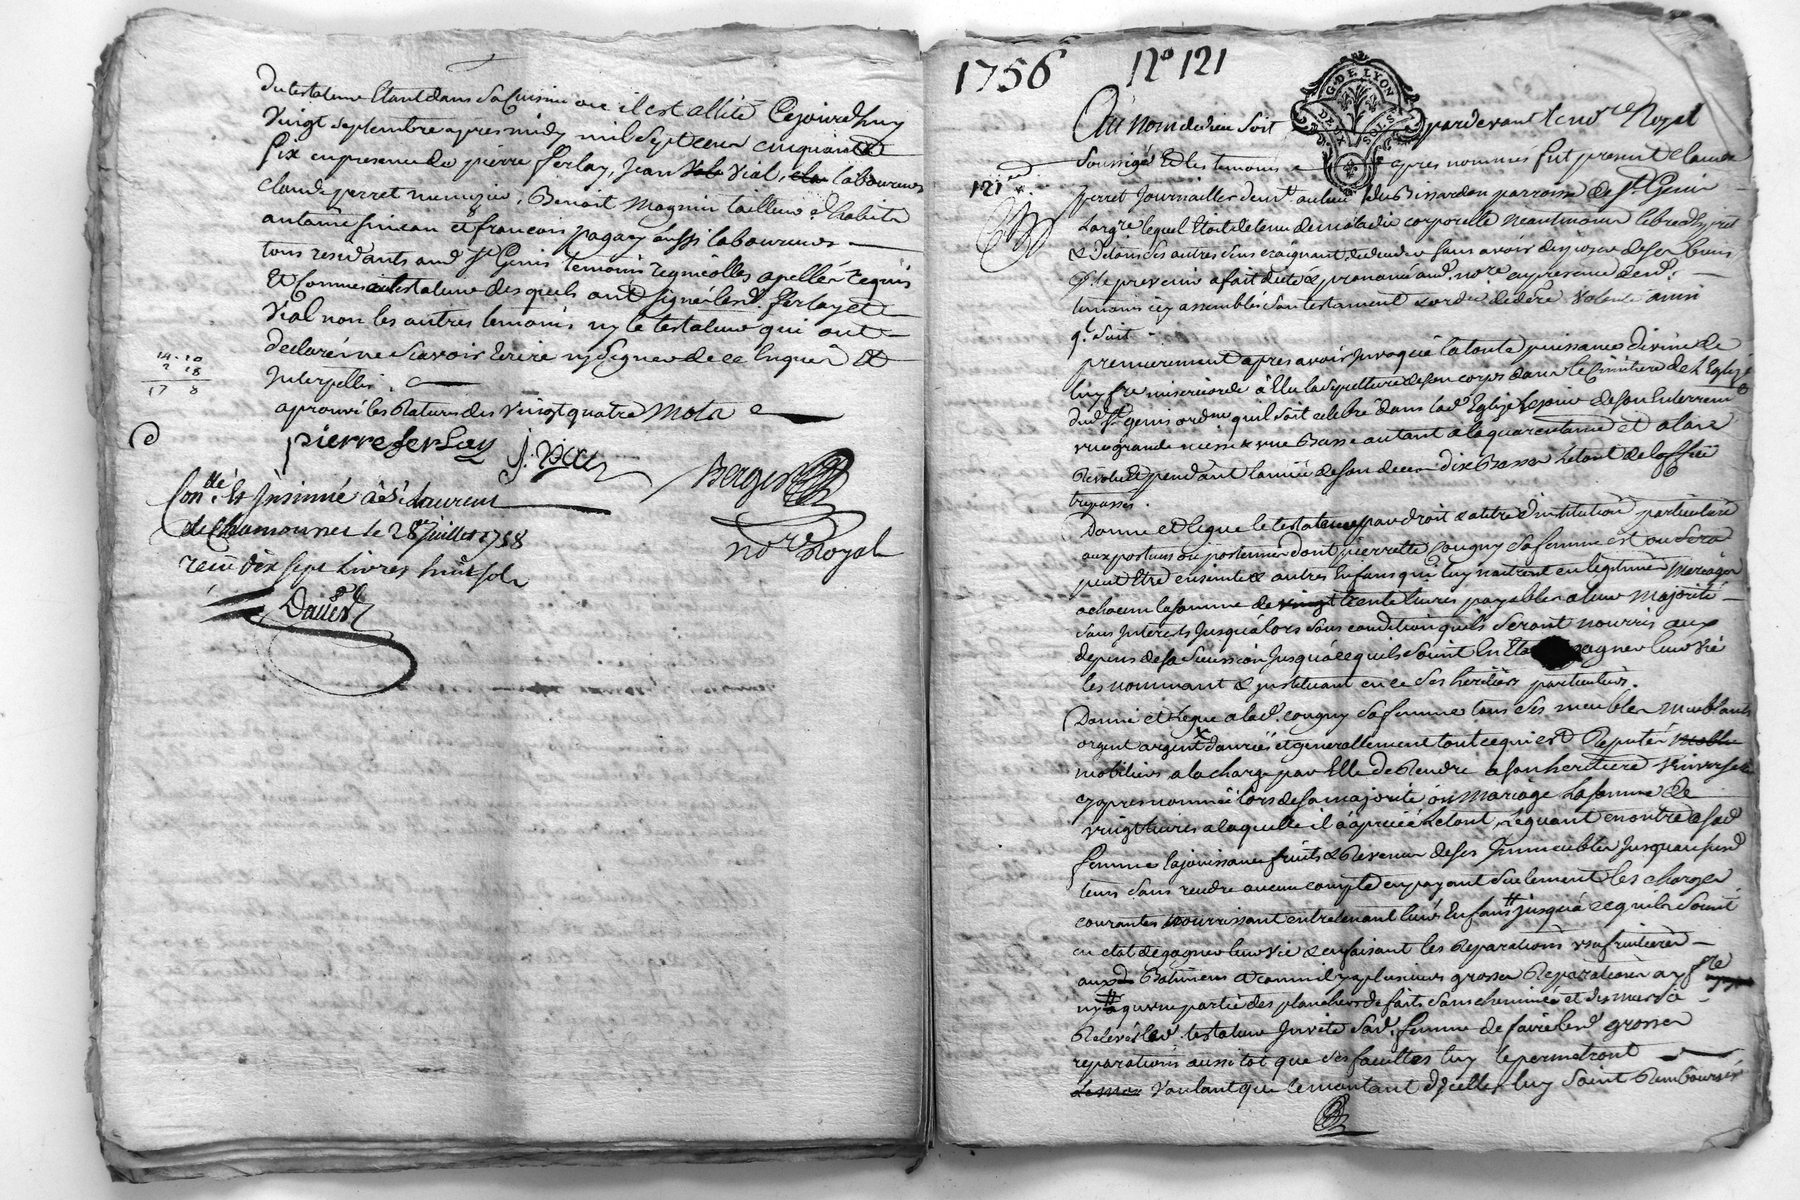 du testateur Etant dans sa Cuisine ou il est allité Cejourdhuy
Vingt septembre apres midy mil sept cent cinquante
six en presence de pierre ferlay, Jean Vial, laboureurs
claude perret menuzier, Benoit Magnin tailleur d'habits
antoine et francois pagay aussi laboureurs
tous residants aud. St Genis temoins regnicolles apellés requis
Et Connus testateur desquels ont signé lesd. ferlay et
Vial non les autres temoins ny le testateur qui ont
declaré ne Scavoir Ecrire ny Signer de ce Enquis Et
Interpellés.
aprouvé les Ratures des Vingt quatre Mots
14-10
2 18
17 8
pierre ferlay
j. Vial
Berger
nore Royal
Conllé. Et Insinué à St Laurent
de Chamousset le 28e juillet 1758
receu dix sept livres huit sols
1756
No 121
G. DE LYON
DEUX SOLS
Au nom de dieu Soit pardevant le nore Royal
Soussigné Et les temoins cy apres nommés fut present claude
121
perret Journaillier demt. au lieu du Bessardon parroisse de St Genis
Largre lequel Etoit detenu de maladie corporelle neantmoins libre d'Esprit
& de tous ses autres sens craignant de deceder sans avoir disposé de ses biens
pr. le prevenir a fait dicté & prononcé aud. nore en presence desd.
temoins icy assemblés son testament & ordre de dere Volonté ainsi
q.l Suit
premierement apres avoir Invoqué la toute puissance divine de
luy fre misericorde à Elu la sepulture de son corps dans le Cimitiere de l'Eglize
dud. St Genis ordne qu'il soit celebré dans lad. Eglise le jour de son Enterremt
une grande messe & une Basse autant a la quarantaine et a l'an
Revolu & pendant l'année de son deces dix Basses le tout de l'office
trepassés.
Donne et legue le testateur par droit & a titre d'institution particuliere
aux postumes ou postumes dont pierrette Cougny sa femme est ou sera
peut Etre ensinte & autres Enfans qui luy naitront en legitime Mariage
a chacun la somme de trente livres payables a leur Majorité
sans Interests Jusqu'alors sous condition quils seront nourris aux
depens de sa Sucession Jusqu'a ce quils soint En Eta gagner leur vie
les nommant & instituant en ce ses heritiers particuliers.
Donne et legue a lad. cougny sa femme tous ses meubles Meublants
argent danrées et generallement tout ce qui est Reputés
mobiliers a la charge par Elle de Rendre a son heritiere Universelle
cy apres nommée lors de sa majorité ou Mariage la somme de
vingt livres a laquelle il a apretié le tout, Leguant en outre a sad.
femme la jouissance fruits & Revenus de ses Immeubles Jusqu'au susd.
tems sans rendre aucun compte en payant seulement les charges
courantes nourrissant entretenant leurs Enfans jusqu'a ce quils soint
en etat de gagner leur vie & en faisant les Reparations usufruitieres
aux Batimens et comme il y a plusieurs grosses Reparations a y fre
ny a qu'une partie des planchers de faits sans cheminée et des murs a
Relever led. testateur Invite sad. femme de faire lesd. grosses
reparations aussitot que ses facultés luy le permetront
Voulant que le montant d'Icelles luy Soint Remboursés